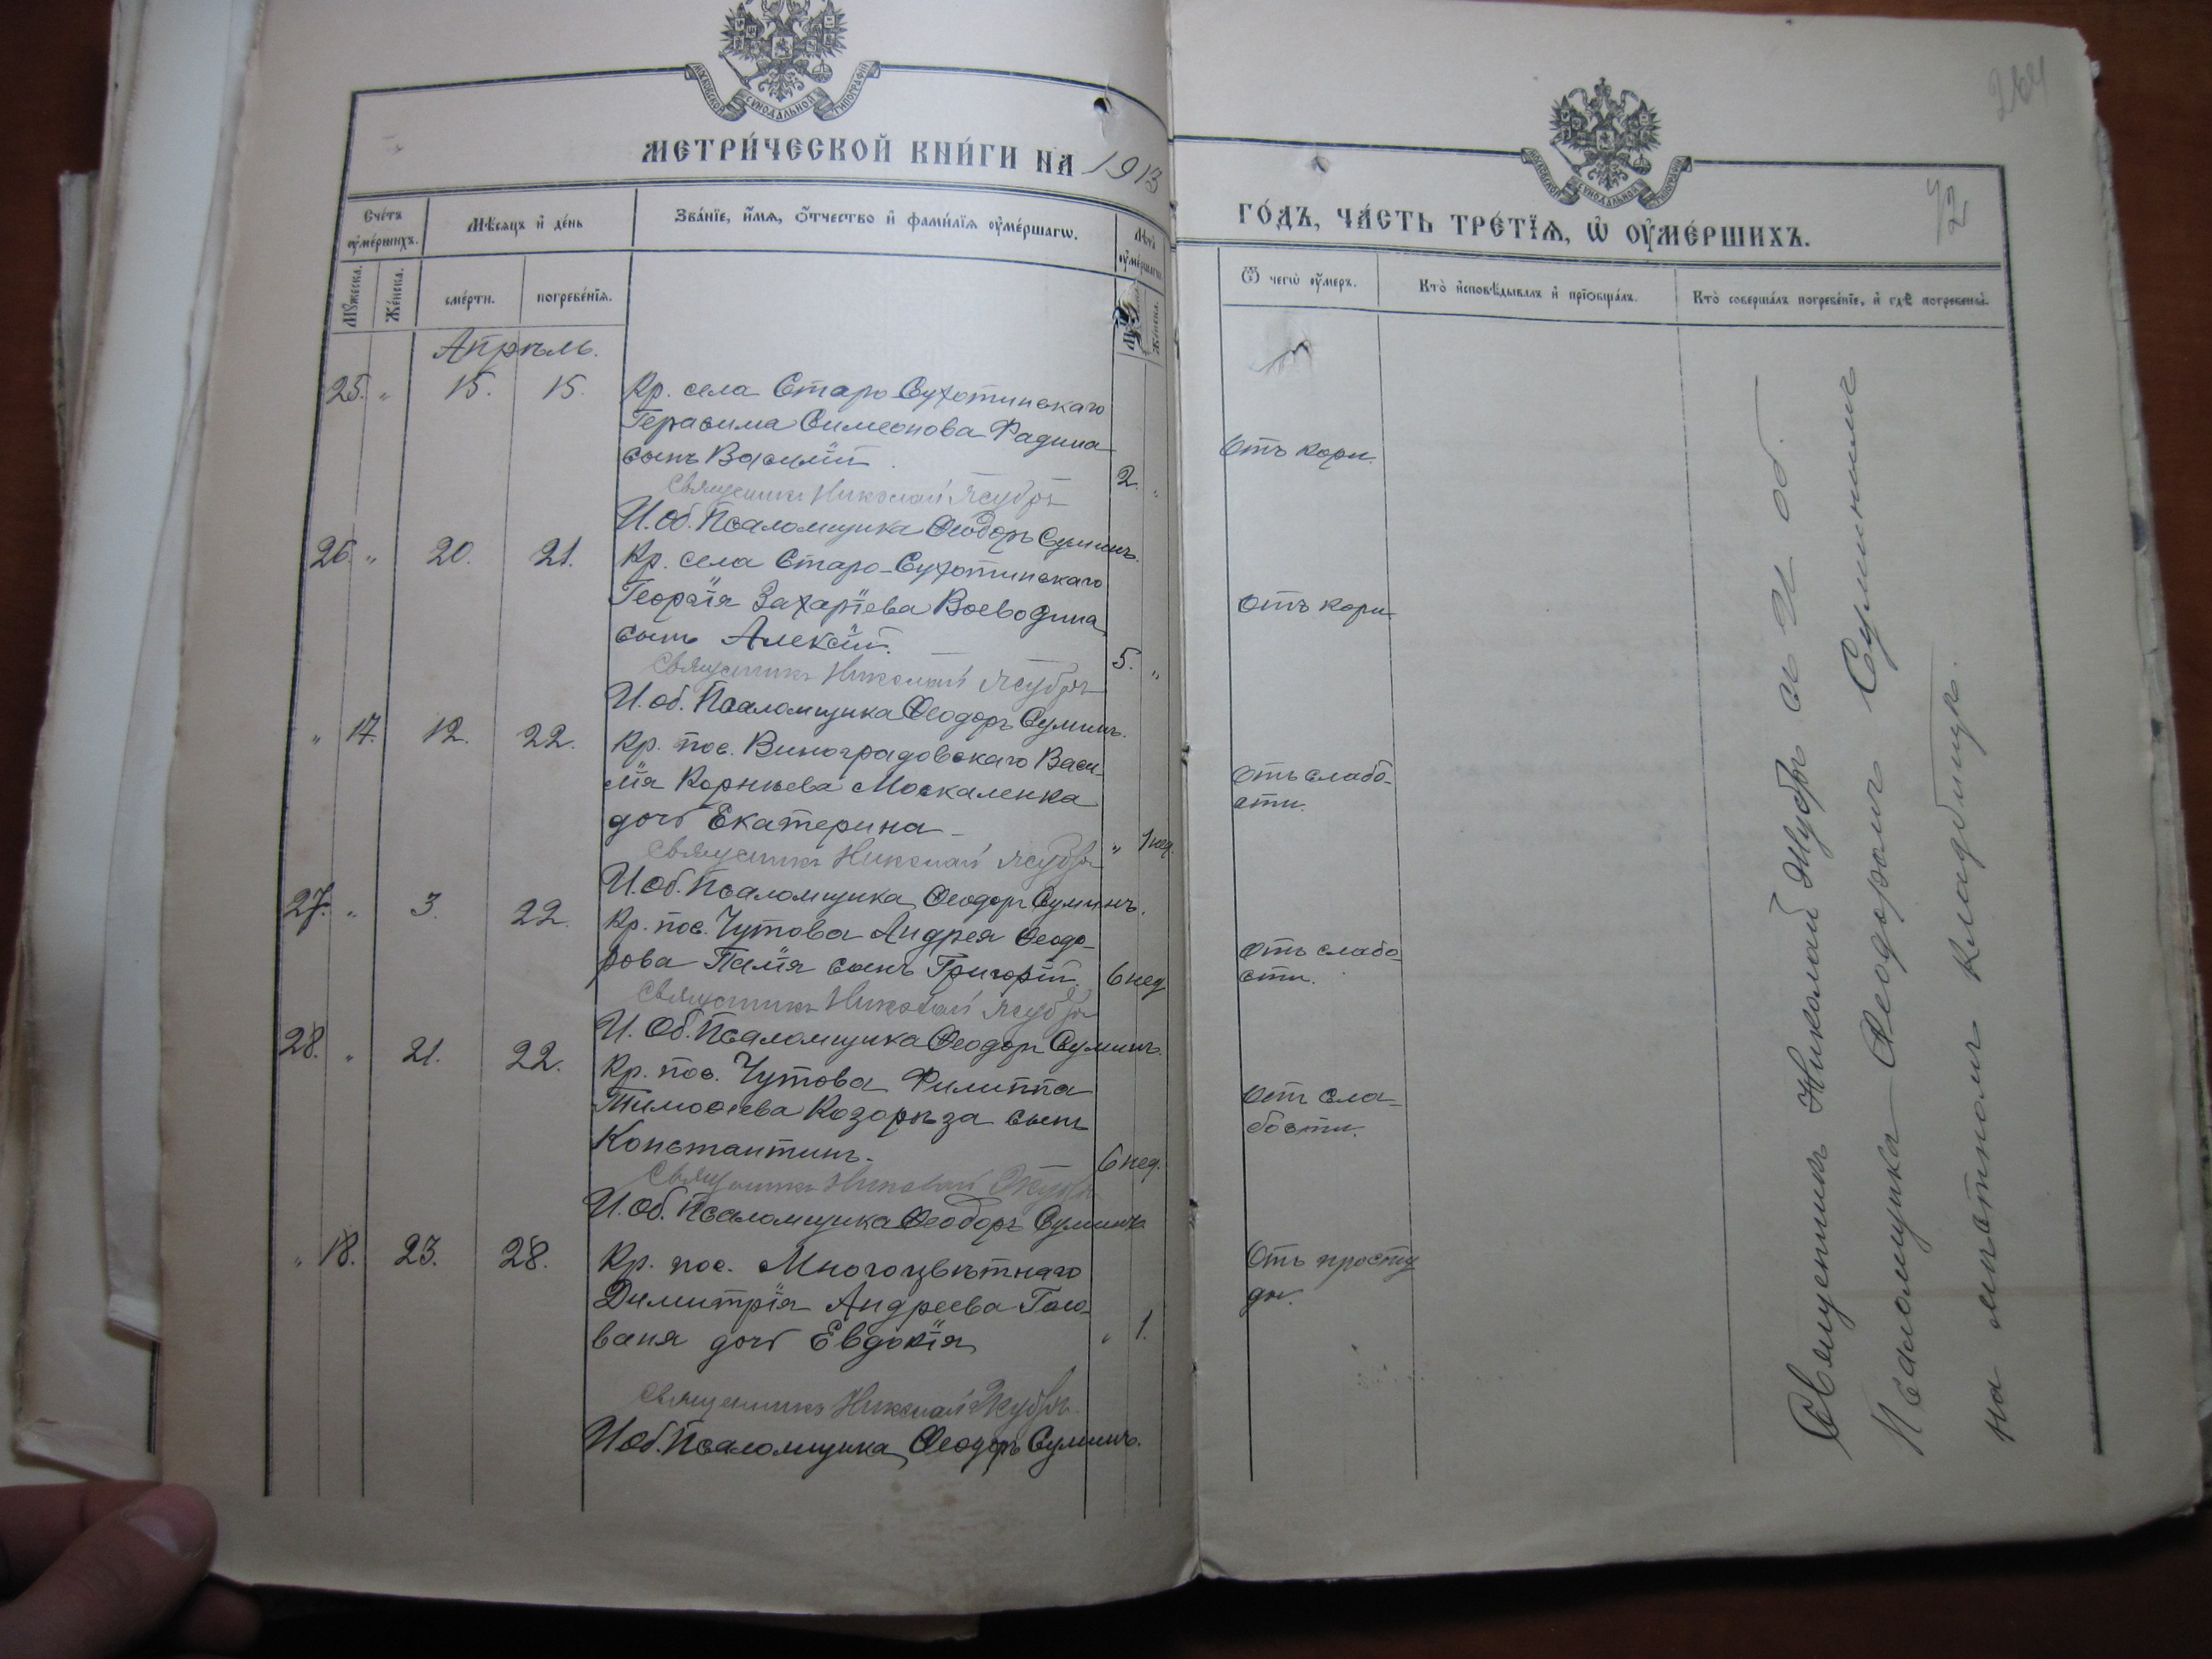 МОСКОВСКОЙ СѴНОДАЛЬНОЙ ТИПОГРАФІИ
МЕТРИ́ЧЕСКОЙ КНИ́ГИ НА 1913
Сче́тъ оу҆ме́ршихъ.
Мѣ́сяцъ и҆ де́нь
Зва́нїе, и҆́мѧ, ѻ҆́тчество и҆ фами́лїѧ оу҆ме́ршагѡ.
Лѣ́та оу҆ме́ршагѡ
Мꙋ́жеска.
Же́нска.
сме́рти.
погребе́нїѧ.
Же́нска.
Апрѣль.
25. " 15. 15. Кр. села Старо-Сухотинскаго
Герасима Симеонова Фадина
сынъ Василій 2. "
Священникъ Николай
И. Об. Псаломщика Ѳеодоръ Суминъ.
26. " 20. 21. Кр. села Старо-Сухотинскаго
Георгія Захаріева Воеводина
сынъ Алексій. 5. "
Священникъ Николай
И. об. Псаломщика Ѳеодоръ Суминъ.
" 17. 12. 22. Кр. пос. Виноградовскаго Васи-
лія Корнѣева Москаленка
дочь Екатерина " 1 нед.
Священникъ Николай
И. Об. Псаломщика Ѳеодоръ Суминъ.
27. " 3. 22. Кр. пос. Чутова Андрея Ѳеодо-
рова Палія сынъ Григорій. 6 нед
Священникъ Николай
И. Об. Псаломщика Ѳеодоръ Суминъ.
28. " 21. 22. Кр. пос. Чутова Филиппа
Тимоѳеева Козорѣза сынъ
Константинъ. 6 нед.
Священникъ Николай
И. Об. Псаломщика Ѳеодоръ Суминъ
" 18. 23. 28. Кр. пос. Многоцвѣтнаго
Димитрія Андреева Голо-
ваня дочь Евдокія " 1.
Священникъ Николай
И об. Псаломщика Ѳеодоръ Суминъ.
264
МОСКОВСКОЙ СѴНОДАЛЬНОЙ ТИПОГРАФІИ
ГО́ДЪ, ЧА́СТЬ ТРЕ́ТЇѦ, Ѡ҆ ОУ҆МЕ́РШИХЪ.
Ѿ чегѡ̀ оу҆́меръ.
Кто̀ и҆сповѣ́дывалъ и҆ прїѡбща́лъ.
Кто̀ соверша́лъ погребе́нїе, и҆ гдѣ̀ погребены̀.
Отъ кори.
Отъ кори
Отъ слабо-
сти.
Отъ слабо-
сти.
Отъ сла-
бости.
Отъ просту
ды.
Священникъ Николай съ И. об.
Псаломщика Ѳеодоромъ Суминымъ
на мѣстномъ кладбищѣ.